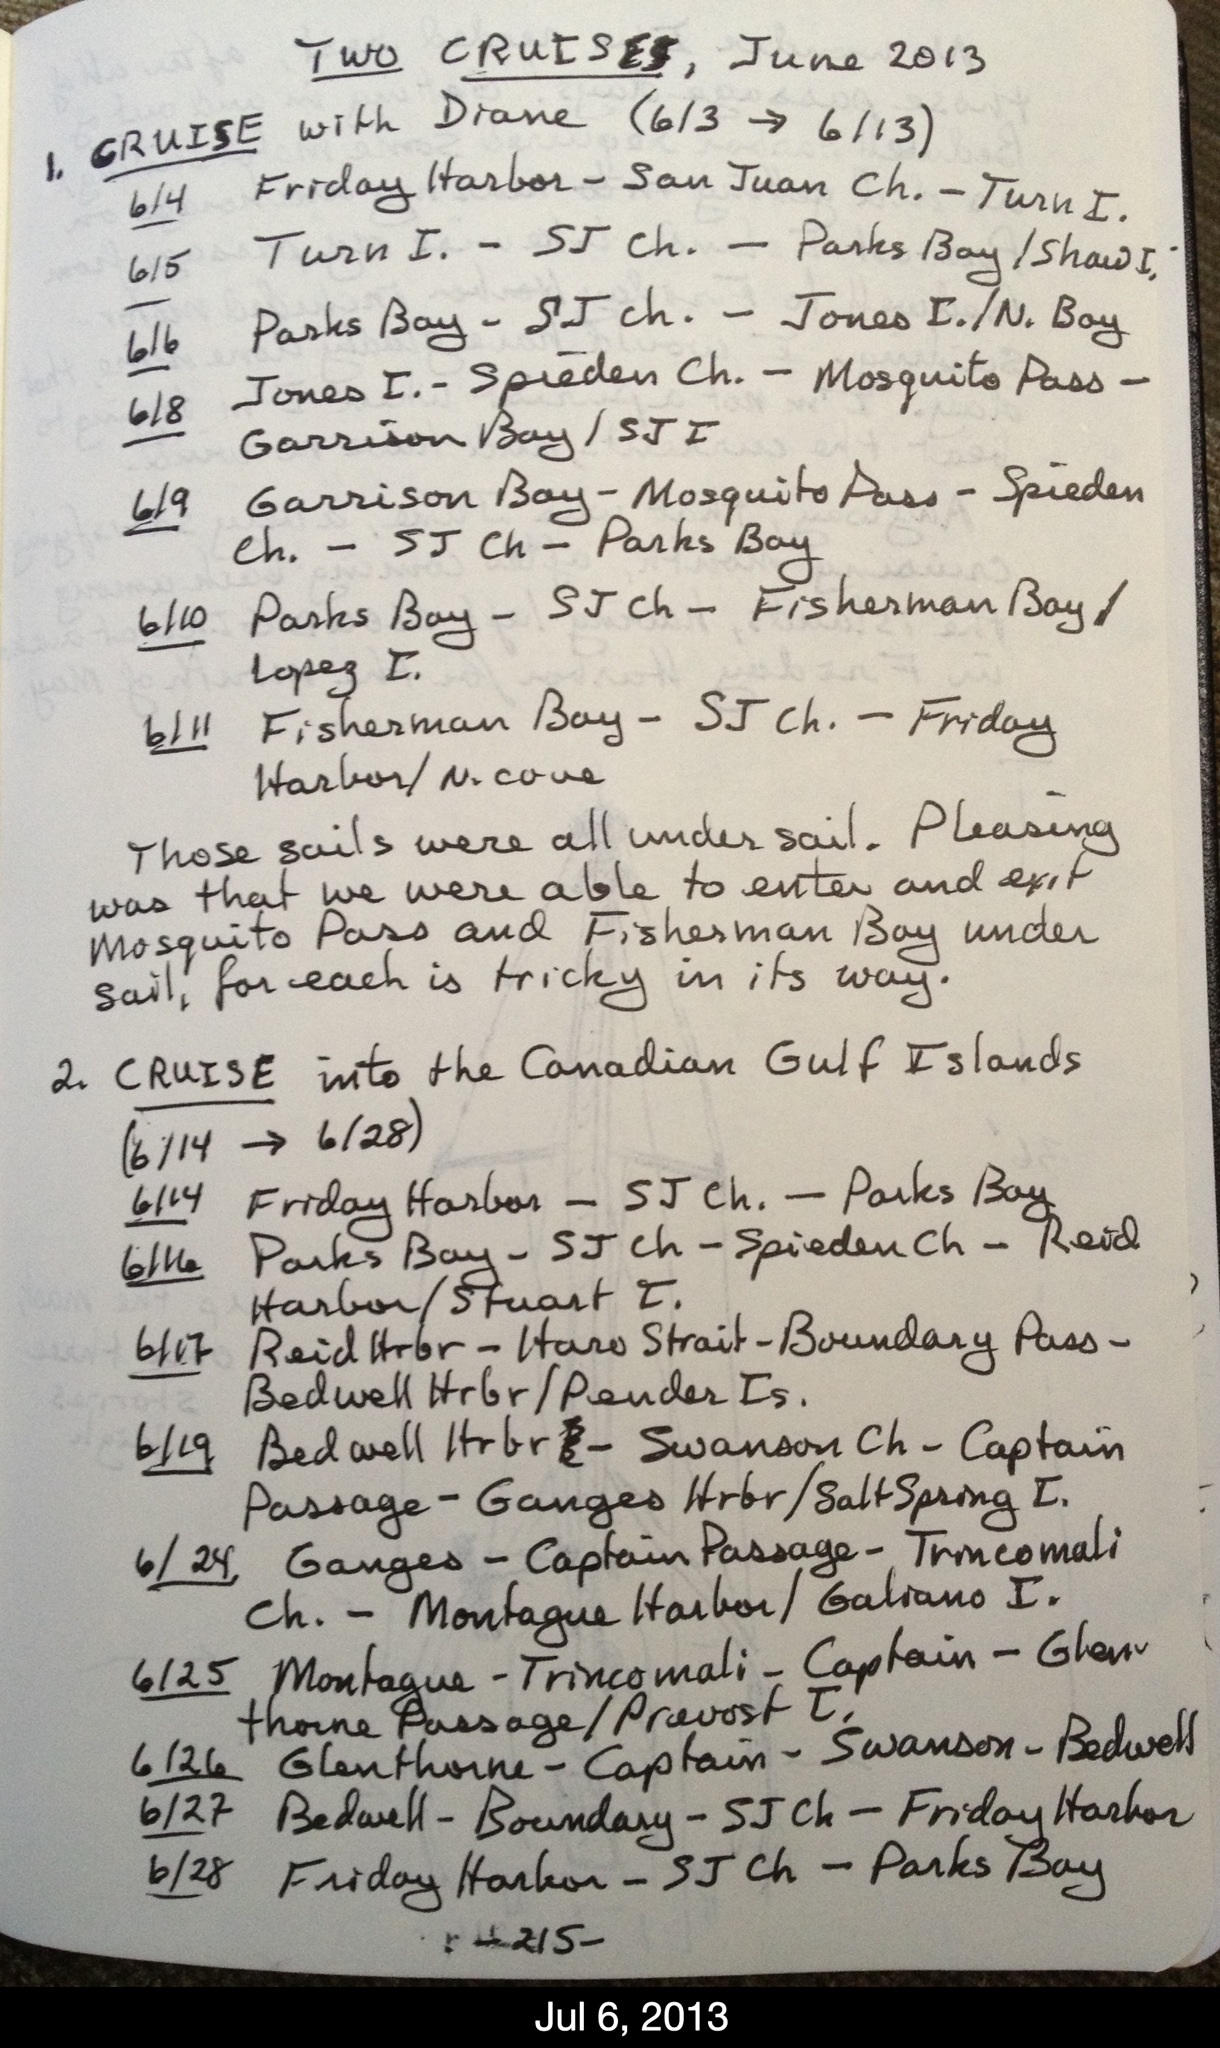 TWO CRUISES, June 2013
1. CRUISE with Diane (6/3 → 6/13)
6/4 Friday Harbor - San Juan Ch. - Turn I.
6/5 Turn I. - SJ Ch. - Parks Bay/Shaw I.
6/6 Parks Bay - SJ Ch. - Jones I./N. Bay
6/8 Jones I. - Spieden Ch. - Mosquito Pass -
Garrison Bay/SJ I
6/9 Garrison Bay - Mosquito Pass - Spieden
Ch. - SJ Ch - Parks Bay
6/10 Parks Bay - SJ Ch - Fisherman Bay/
Lopez I.
6/11 Fisherman Bay - SJ Ch. - Friday
Harbor/N. Cove
Those sails were all under sail. Pleasing
was that we were able to enter and exit
Mosquito Pass and Fisherman Bay under
sail, for each is tricky in its way.
2. CRUISE into the Canadian Gulf Islands
(6/14 → 6/28)
6/14 Friday Harbor - SJ Ch. - Parks Bay
6/16 Parks Bay - SJ Ch - Spieden Ch - Reid
Harbor/Stuart I.
6/17 Reid Hrbr - Haro Strait - Boundary Pass -
Bedwell Hrbr/Pender Is.
6/19 Bedwell Hrbr - Swanson Ch - Captain
Passage - Ganges Hrbr/SaltSpring I.
6/24 Ganges - Captain Passage - Trincomali
Ch. - Montague Harbor/Galiano I.
6/25 Montague - Trincomali - Captain - Glen
thorne Passage/Prevost I.
6/26 Glenthorne - Captain - Swanson - Bedwell
6/27 Bedwell - Boundary - SJ Ch - Friday Harbor
6/28 Friday Harbor - SJ Ch - Parks Bay
-215-
Jul 6, 2013